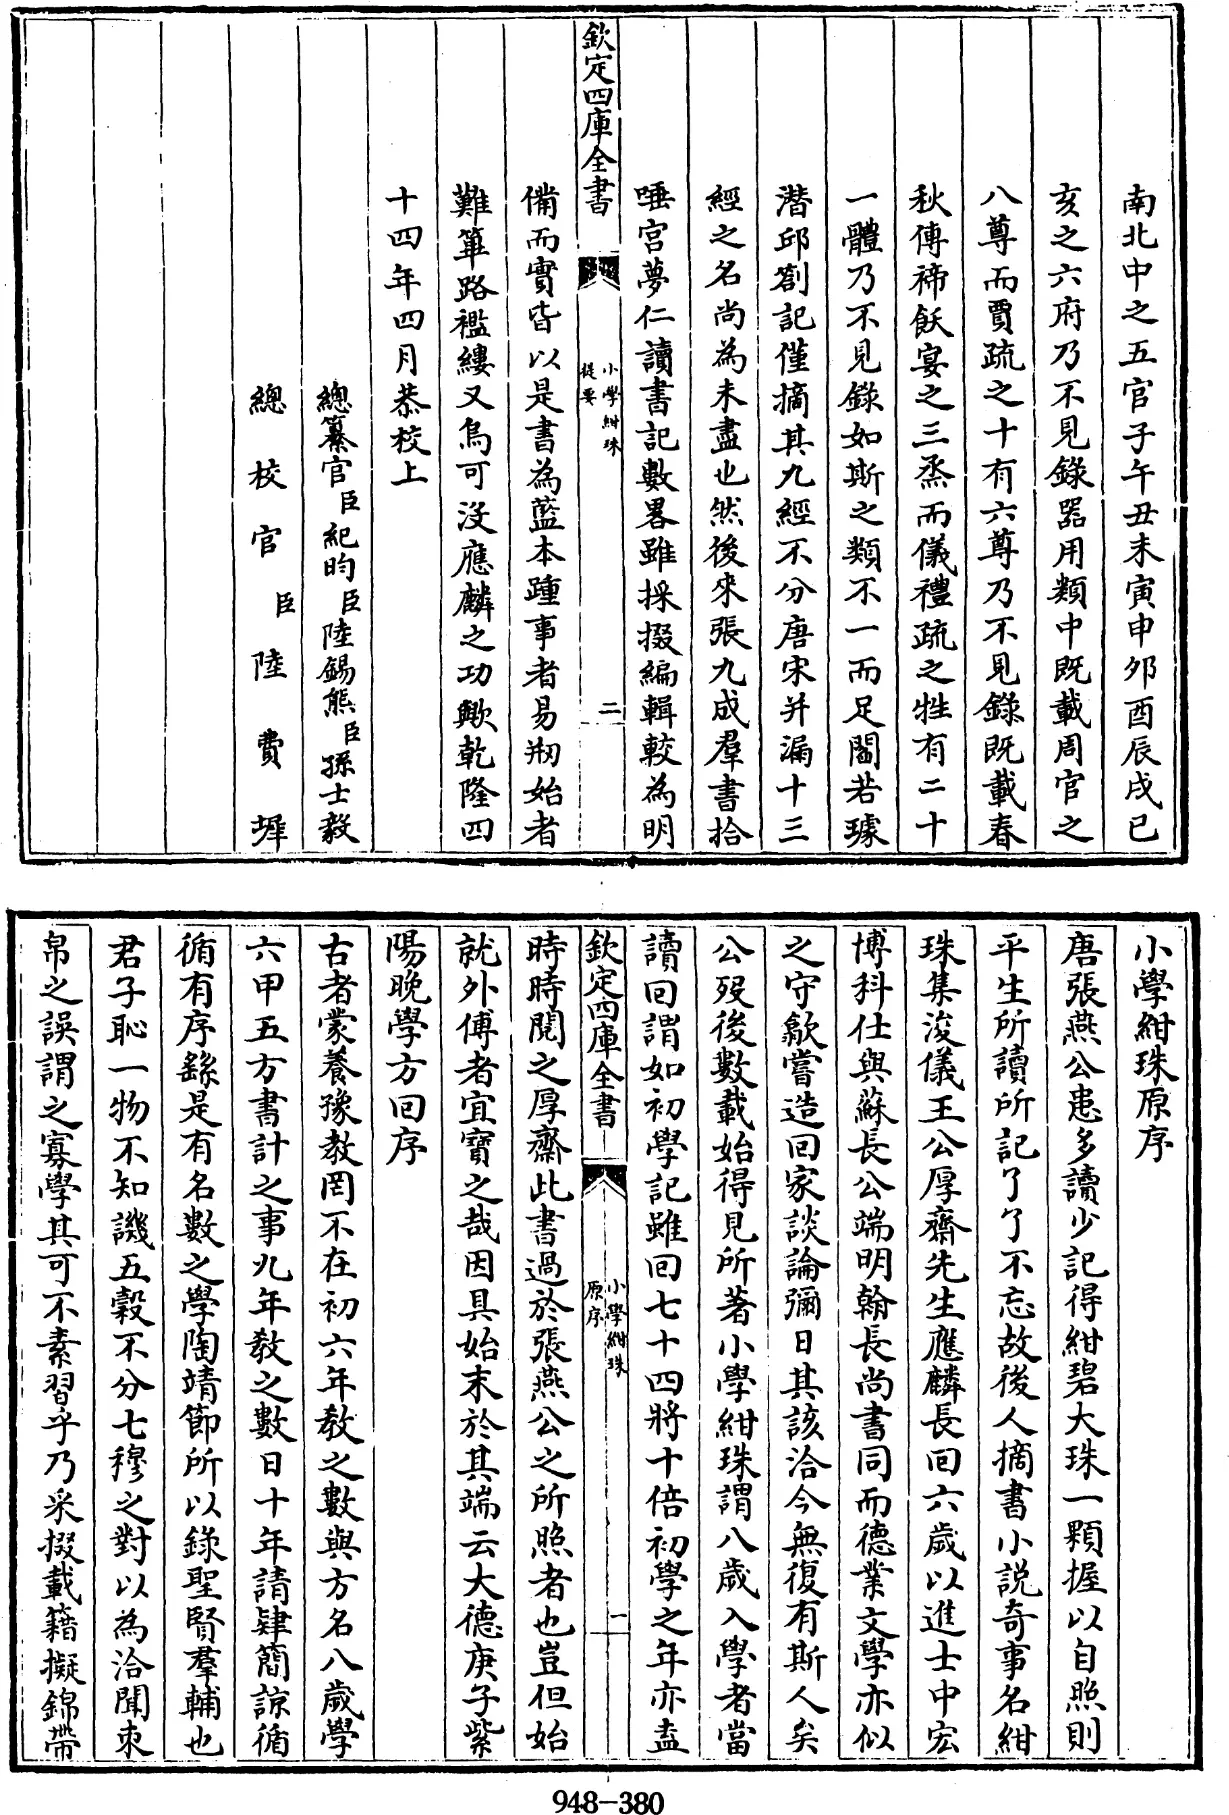 南北中之五官子午丑未寅申夘酉辰戌已
亥之六府乃不見錄器用類中既載周官之
八尊而賈疏之十有六尊乃不見錄既載春
秋傳禘飫宴之三烝而儀禮疏之牲有二十
一體乃不見錄如斯之類不一而足閻若璩
潛邱劄記僅摘其九經不分唐宋并漏十三
經之名尚為未盡也然後來張九成羣書拾
唾宫夢仁讀書記數畧雖採掇編輯較為明
欽定四庫全書
小學紺珠
提要
二
備而實皆以是書為藍本踵事者易剏始者
難篳路襤縷又烏可没應麟之功歟乾隆四
十四年四月恭校上
總纂官臣紀昀臣陸錫熊臣孫士毅
總校官臣陸費墀
小學紺珠原序
唐張燕公患多讀少記得紺碧大珠一顆握以自照則
平生所讀所記了了不忘故後人摘書小説竒事名紺
珠集浚儀王公厚齋先生應麟長回六歲以進士中宏
博科仕與蘇長公端明翰長尚書同而德業文學亦似
之守歙嘗造回家談論彌日其該洽今無復有斯人矣
公殁後數載始得見所著小學紺珠謂八歲入學者當
讀回謂如初學記雖回七十四將十倍初學之年亦盍
欽定四庫全書
小學紺珠
原序
一
時時閱之厚齋此書過於張燕公之所照者也豈但始
就外傅者宜寳之哉因具始末於其端云大德庚子紫
陽晚學方回序
古者蒙養豫教罔不在初六年教之數與方名八歲學
六甲五方書計之事九年教之數日十年請肄簡諒循
循有序繇是有名數之學陶靖節所以錄聖賢羣輔也
君子恥一物不知譏五穀不分七穆之對以為洽聞束
帛之誤謂之寡學其可不素習乎乃采掇載籍擬錦帶
948-380